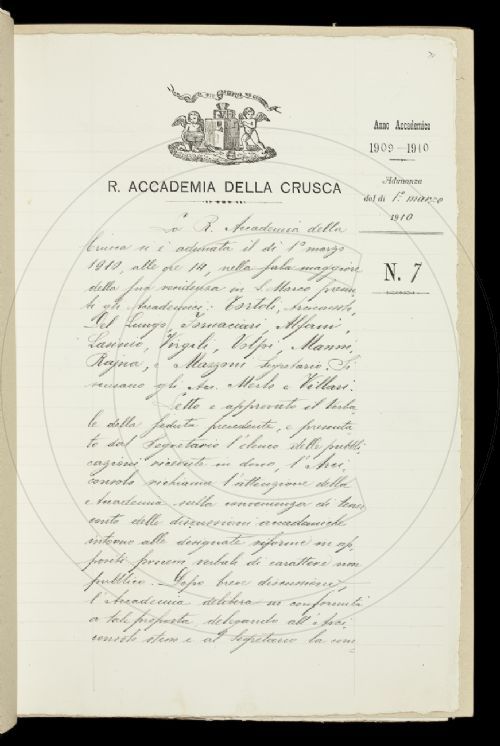 Anno Accademico
1909-1910
Adunanza
del dì 1º marzo
1910
N. 7
R. ACCADEMIA DELLA CRUSCA
La R. Accademia della
Crusca si è adunata il dì 1º marzo
1910, alle ore 14, nella sala maggiore
della sua residenza in S. Marco presen
ti gli Accademici: Tortoli, Arciconsolo,
Del Lungo, Fornaciari, Alfani,
Tassinio, Virgili, Volpi, Manni,
Rajna, e Mazzoni Segretario. Si
scusano gli Acc. Merlo e Villari.
Letto e approvato il verba
le della seduta precedente, e presenta
to dal Segretario l'elenco delle pubbli
cazioni ricevute in dono, l'Arci
consolo richiama l'attenzione della
Accademia sulla convenienza di tener
conto delle discussioni accademiche
intorno alle designate riforme in ap
positi processi verbali di carattere non
pubblico. Dopo breve discussione,
l'Accademia delibera in conformità
a tale proposta, delegando all'Arci
consolo stesso e al Segretario la com=